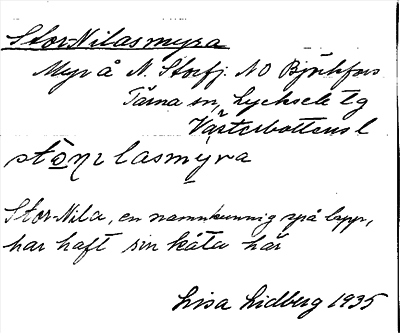 Stor-Nilasmyra
Myr å N. Storfj. NO Björkfors
Tärna sn, Lycksele tg
Västerbottens l
stōnɩlasmyra
Stor-Nila, en namnkunnig spå lapp,
har haft sin kåta här
Lisa Lidberg 1935